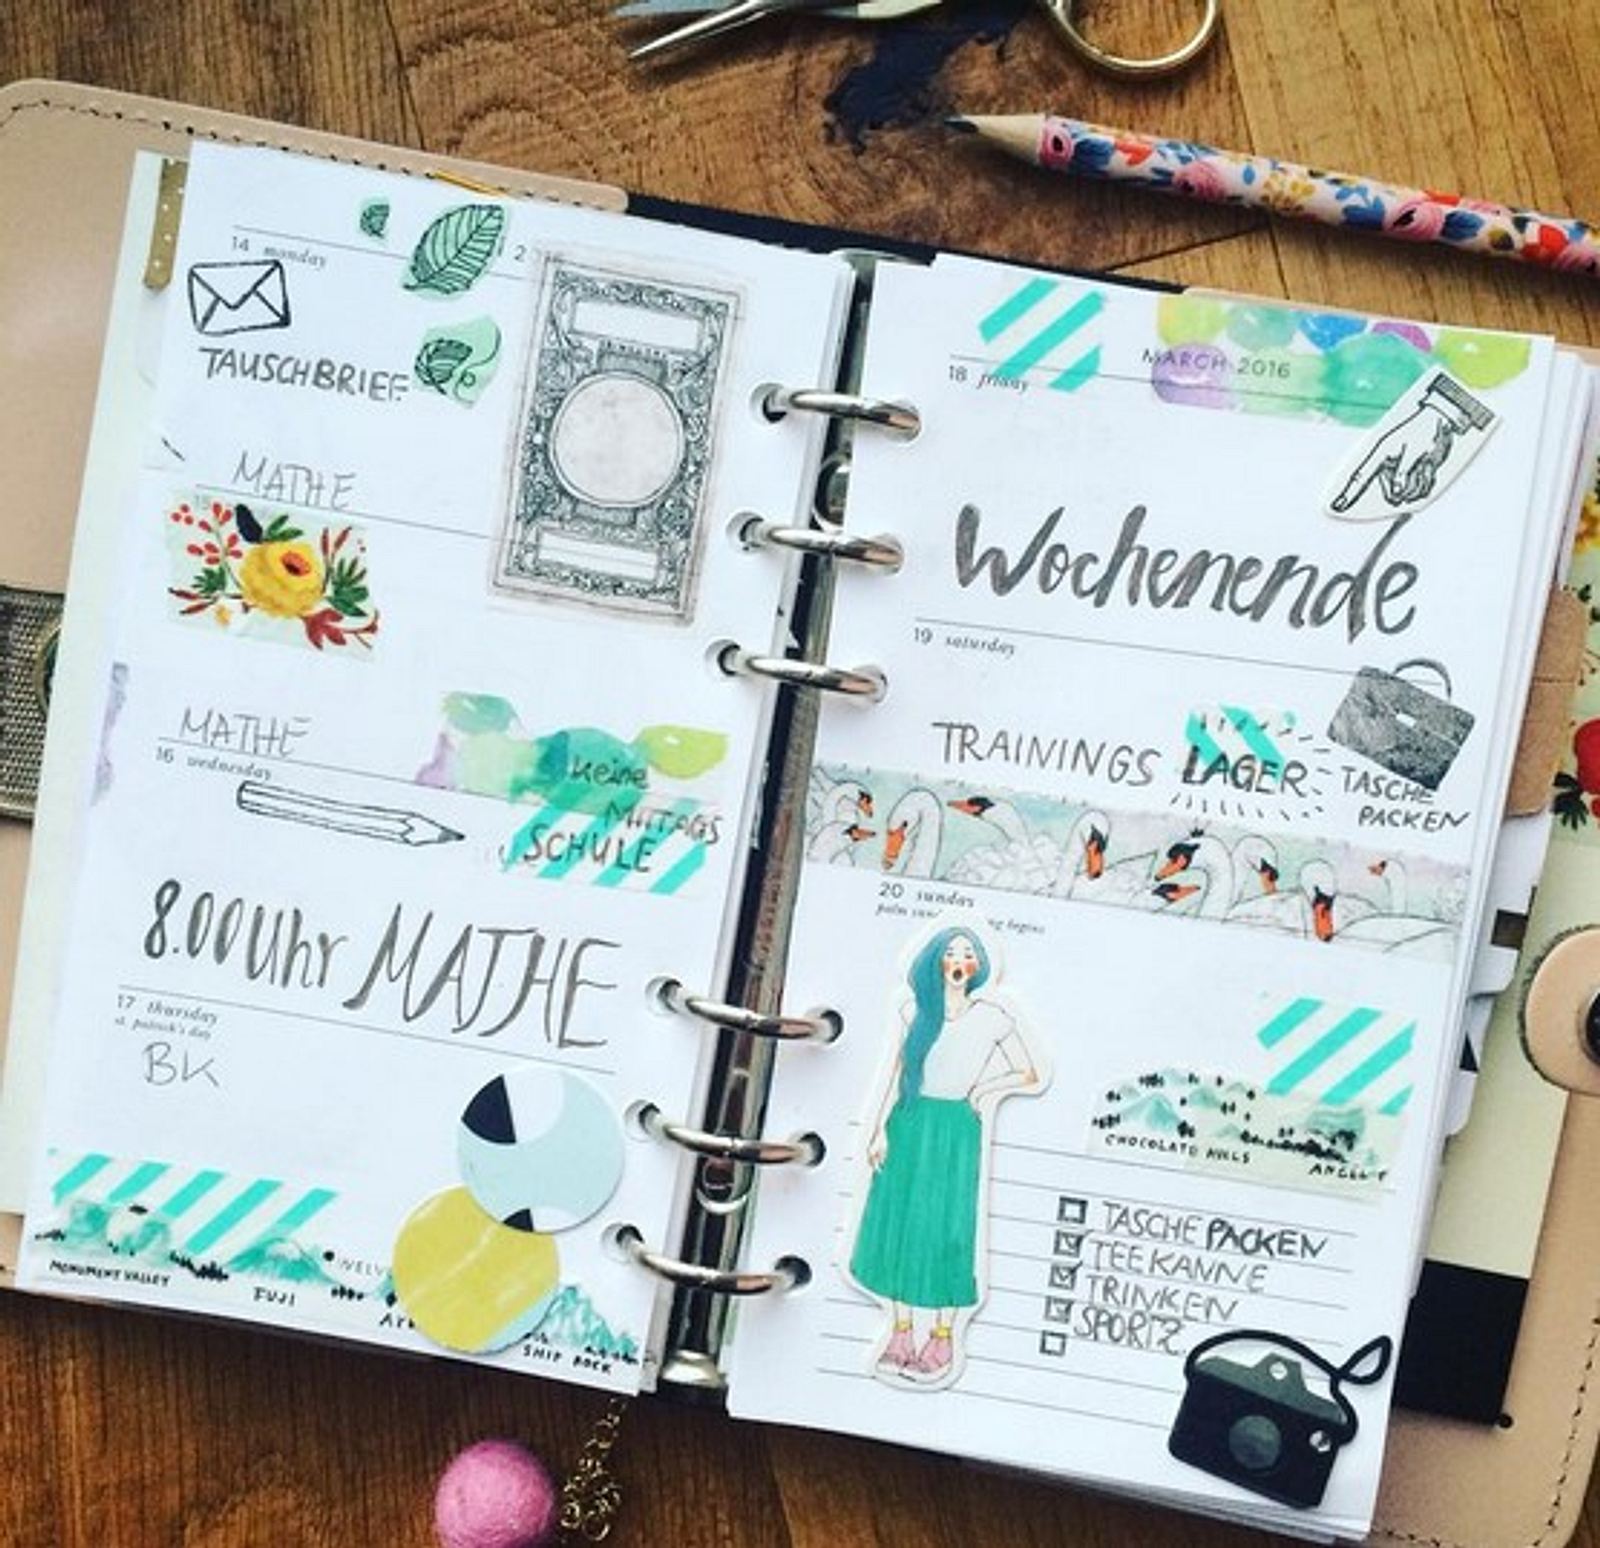 14 monday
2
TAUSCHBRIEF
MATHE
15
MATHE
16 wednesday
keine
MITTAGS
SCHULE
8.00 Uhr MATHE
17 thursday
st. patrick's day
BK
MONUMENT VALLEY
FUJI
SHIP ROCK
MARCH 2016
18 friday
Wochenende
19 saturday
TRAININGS LAGER
TASCHE
PACKEN
20 sunday
palm
begins
CHOCOLATE HILLS
TASCHE PACKEN
TEEKANNE
TRINKEN